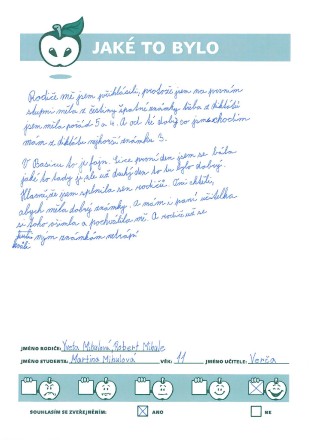 JAKÉ TO BYLO
Rodiče mě jsem přihlásili, protože jsem na prvním
stupni měla z češtiny špatné známky třeba z diktátů
jsem měla pořád 5 a 4. A od té doby co jsem chodím
mám z diktátu nejhorší známku 3.
V Basicu to je fajn. Sice první den jsem se bála
jaké to tady je, ale už druhý den to tu bylo dobrý.
Hlavně, že jsem splnila sen rodičů. Oni chtěli,
abych měla dobrý známky. A mám i paní učitelka
si toho všimla a pochválila mě. A rodiče už se
mým známkám netrápí
JMÉNO RODIČE: Yveta Mihulová, Robert Mihule
JMÉNO STUDENTA: Martina Mihulová VĚK: 11 JMÉNO UČITELE: Verča
SOUHLASÍM SE ZVEŘEJNĚNÍM: ANO NE